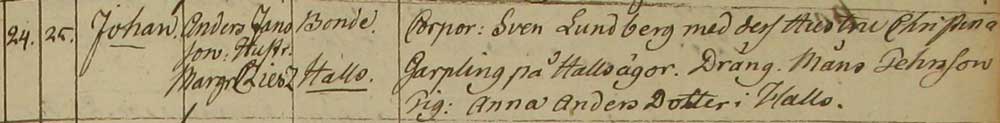 24. 25. Johan. Anders Jans Bonde. Corpor: Sven Lundberg med dess Hustru Christina
son: Hustr. Garpling på Halls ägor. Dräng. Måns Pehrsson
Margr. Halls. Pig: Anna Anders Dotter i Halls.